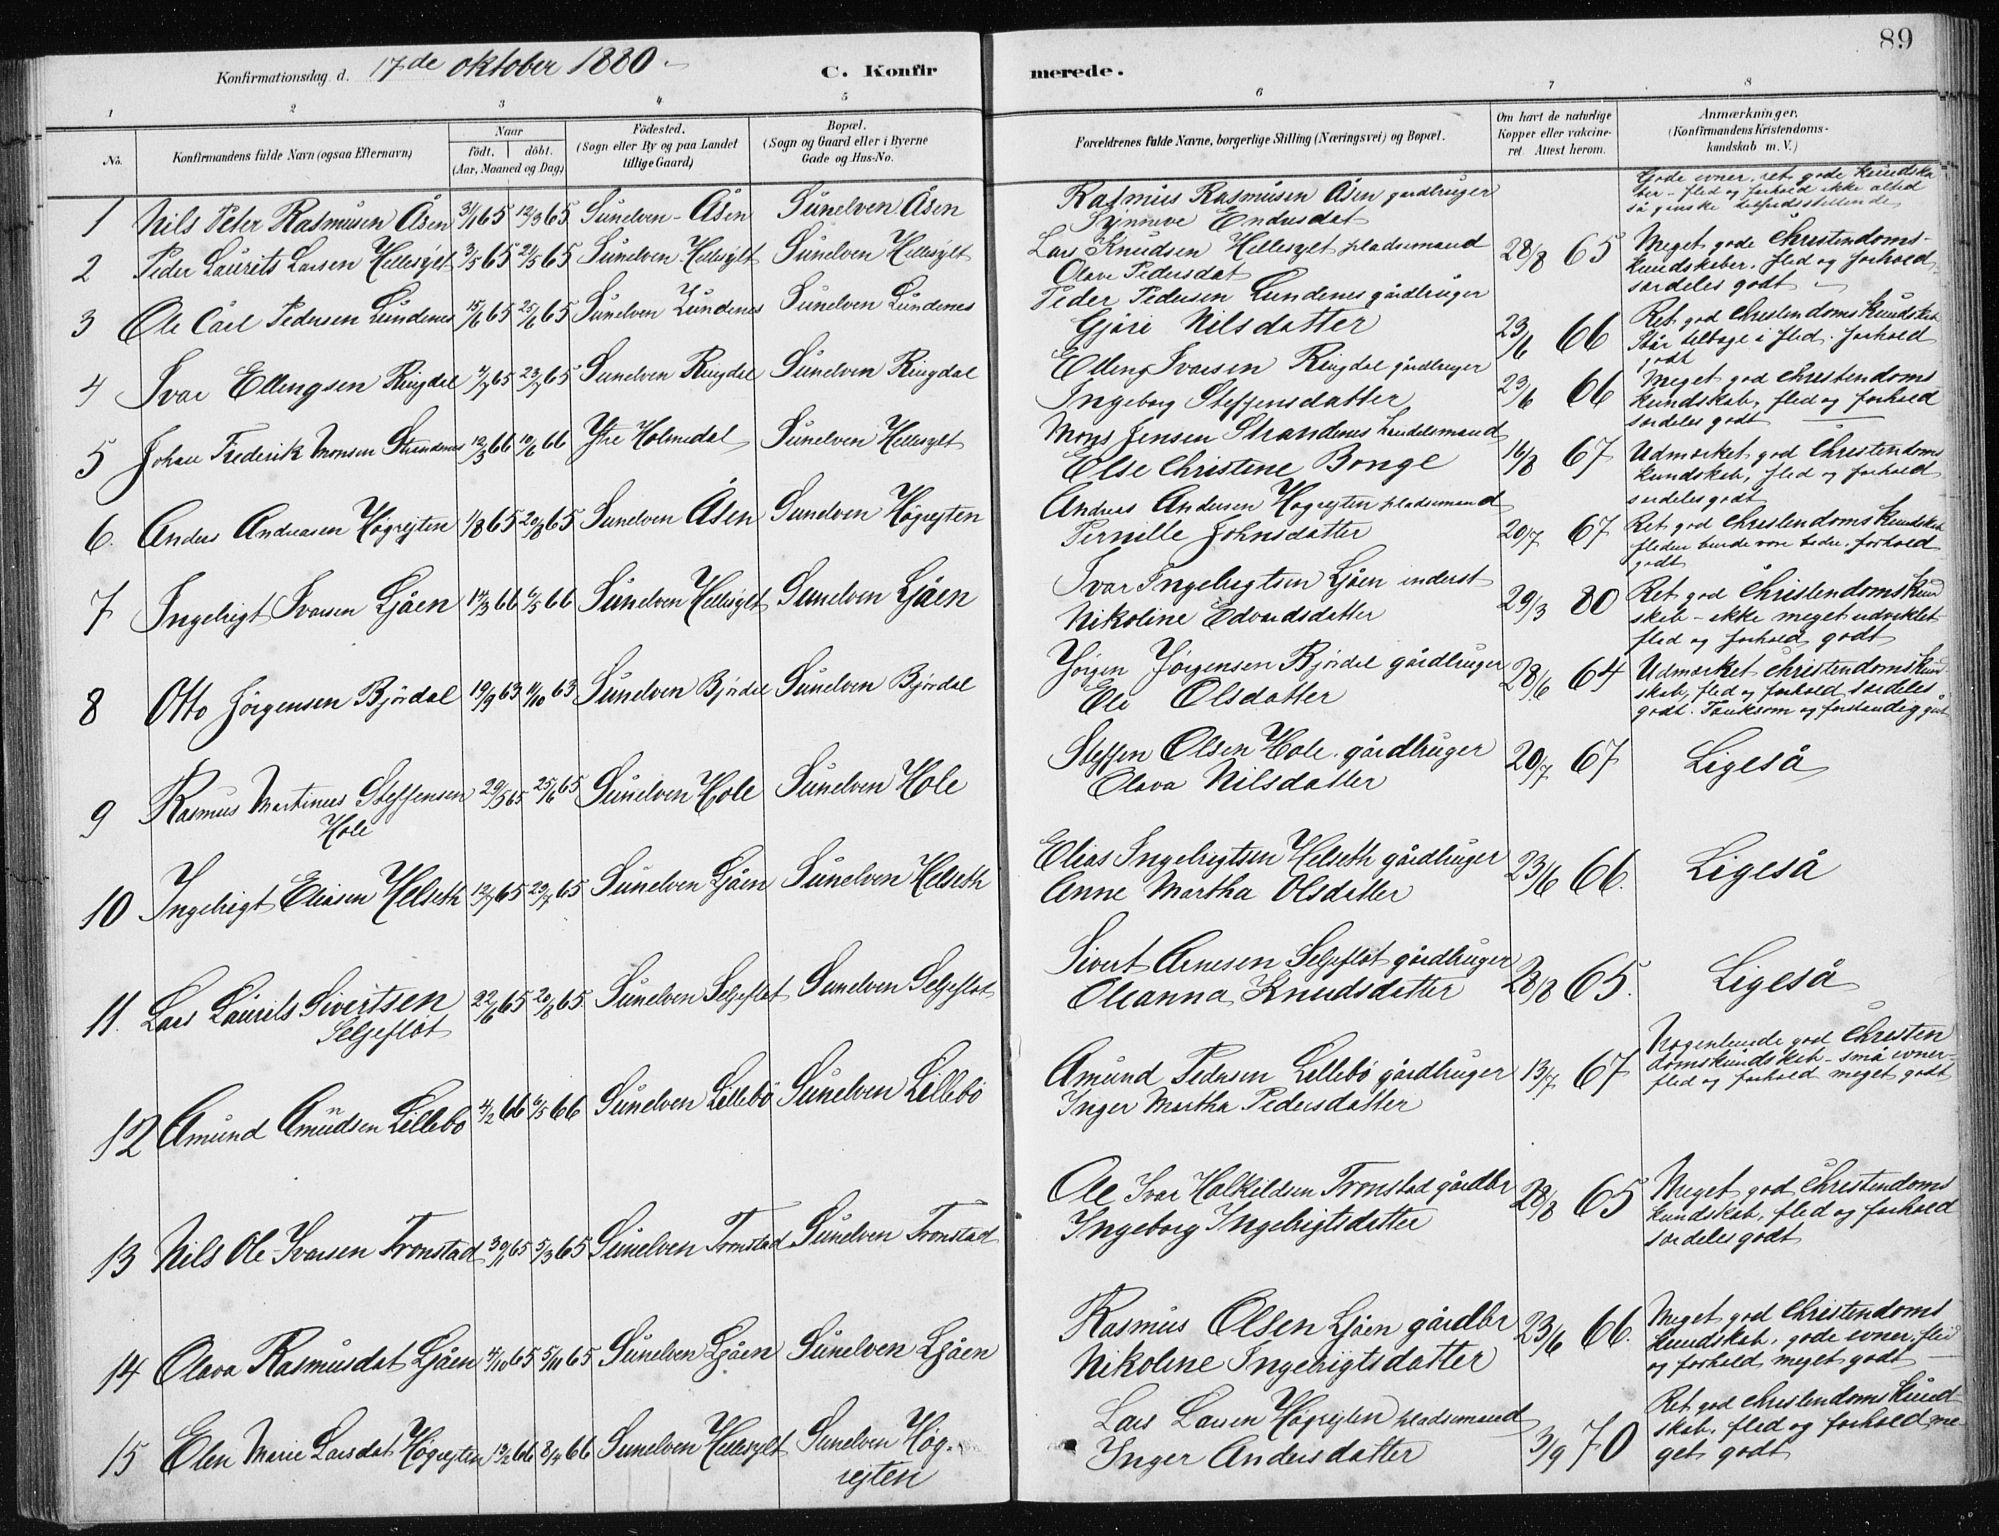 89
Konfirmationsdag d. 17de oktober 1880.
C. Konfirmerede.
1 2 3 4 5 6 7 8
No.
Konfirmandens fulde Navn (ogsaa Efternavn)
Naar
födt. döbt.
(Aar, Maaned og Dag)
Födested.
(Sogn eller By og paa Landet
tillige Gaard)
Bopæl.
(Sogn og Gaard eller i Byerne
Gade og Hus-No.
Forældrenes fulde Navne, borgerlige Stilling (Næringsvei) og Bopæl.
Om havt de naturlige
Kopper eller vakcine-
ret. Attest herom.
Anmærkninger.
(Konfirmandens Kristendoms-
kundskab m. V.)
1 Nils Peter Rasmusen Åsen 31/1 65 12/3 65 Sunelven - Åsen Sunelven Åsen
Rasmus Rasmusen Åsen gardbruger
Synneve Endresdat
Gode evner, ret gode kundska
ber - flid og forhold ikke altid
så ganske tilfredsstillende
2 Peder Laurits Larsen Hellesylt 3/5 65 21/5 65 Sunelven Hellesylt Sunelven Hellesylt
Lars Knudsen Hellesylt pladsemand
Olave Pedersdat
28/8 65
Meget gode Christendoms-
kundskaber. flid og forhold
særdeles godt
3 Ole Carl Pedersen Lundenes 15/6 65 25/6 65 Sunelven Lundenes Sunelven Lundenes
Peder Pedersen Lundenes gårdbruger
Gjøri Nilsdatter
23/6 66
Ret god Christendomskundskab
Står tilbage i flid. forhold
godt
4 Ivar Ellingsen Ringdal 4/7 65 23/7 65 Sunelven Ringdal Sunelven Ringdal
Elling Ivarsen Ringdal gårdbruger
Ingeborg Steffensdatter
23/6 66
Meget god Christendoms-
kundskab, flid og forhold
særdeles godt
5 Johan Frederik Monsen Strandenes 12/3 66 10/6 66 Ytre Holmedal Sunelven Hellesylt
Mons Jensen Strandenes handelsmand
Else Christine Bonge
16/8 67
Udmærket god Christendoms
kundskab, flid og forhold
særdeles godt
6. Anders Andreasen Høgrejten 1/8 65 20/8 65 Sunelven Åsen Sunelven Høgrejten
Andreas Andersen Høgrejten pladsemand
Pernille Johnsdatter
20/7 67
Ret god Christendomskundskab
fliden burde være bedre. forhold
godt
7 Ingebrigt Ivarsen Ljåen 14/3 66 9/5 66 Sunelven Hellesylt Sunelven Ljåen
Ivar Ingebrigtsen Ljåen inderst
Nikoline Edvardsdatter
29/3 80
Ret god Christendomskund
skab - ikke meget udviklet
flid og forhold godt
8 Otto Jørgensen Bjørdal 19/9 63 11/10 63 Sunelven Bjørdal Sunelven Bjørdal
Jørgen Jørgensen Bjørdal gårdbruger
Eli Olsdatter
28/6 64
Udmærket christendomskund
skab, flid og forhold særdeles
godt. Tænksom og forstandig gut
9 Rasmus Martinus Steffensen
Hole
29/5 65 25/6 65 Sunelven Hole Sunelven Hole
Steffen Olsen Hole gårdbruger
Olava Nilsdatter
20/7 67
Ligeså
10 Ingebrigt Eliasen Helseth 12/7 65 23/7 65 Sunelven Ljåen Sunelven Helseth
Elias Ingebrigtsen Helseth gårdbruger
Anne Martha Olsdatter
23/6 66.
Ligeså
11. Lars Laurits Sivertsen
Seljeflot
22/6 65 20/8 65. Sunelven Seljeflot Sunelven Seljeflot
Sivert Arnesen Seljeflot gårdbruger
Oleanna Knudsdatter
28/8 65.
Ligeså
12 Amund Amundsen Lillebø 4/2 66 6/5 66 Sunelven Lillebø Sunelven Lillebø
Amund Pedersen Lillebø gårdbruger
Inger Martha Pedersdatter
13/7 67
Nogenlunde god Christen
domskundskab - små evner-
flid og forhold meget godt
13 Nils Ole Ivarsen Tronstad 30/1 65 5/3 65 Sunelven Tronstad Sunelven Tronstad
Ole Ivar Halkildsen Tronstad gårdbr
Ingeborg Ingebrigtsdatter
28/8 65
Meget god Christendoms
kundskab, flid og forhold
særdeles godt
14 Olava Rasmusdat Ljåen 4/10 65 5/11 65 Sunelven Ljåen Sunelven Ljåen
Rasmus Olsen Ljåen gårdbr
Nikoline Ingebrigtsdatter
23/6 66.
Meget god Christendoms
kundskab, gode evner, flid
og forhold meget godt
15 Elen Marie Larsdat Høgrejten 19/2 66 8/4 66 Sunelven Hellesylt Sunelven Høg-
rejten
Lars Larsen Høgrejten pladsemand
Inger Andersdatter
3/9 70
Ret god christendomskund-
skab. flid og forhold me-
get godt